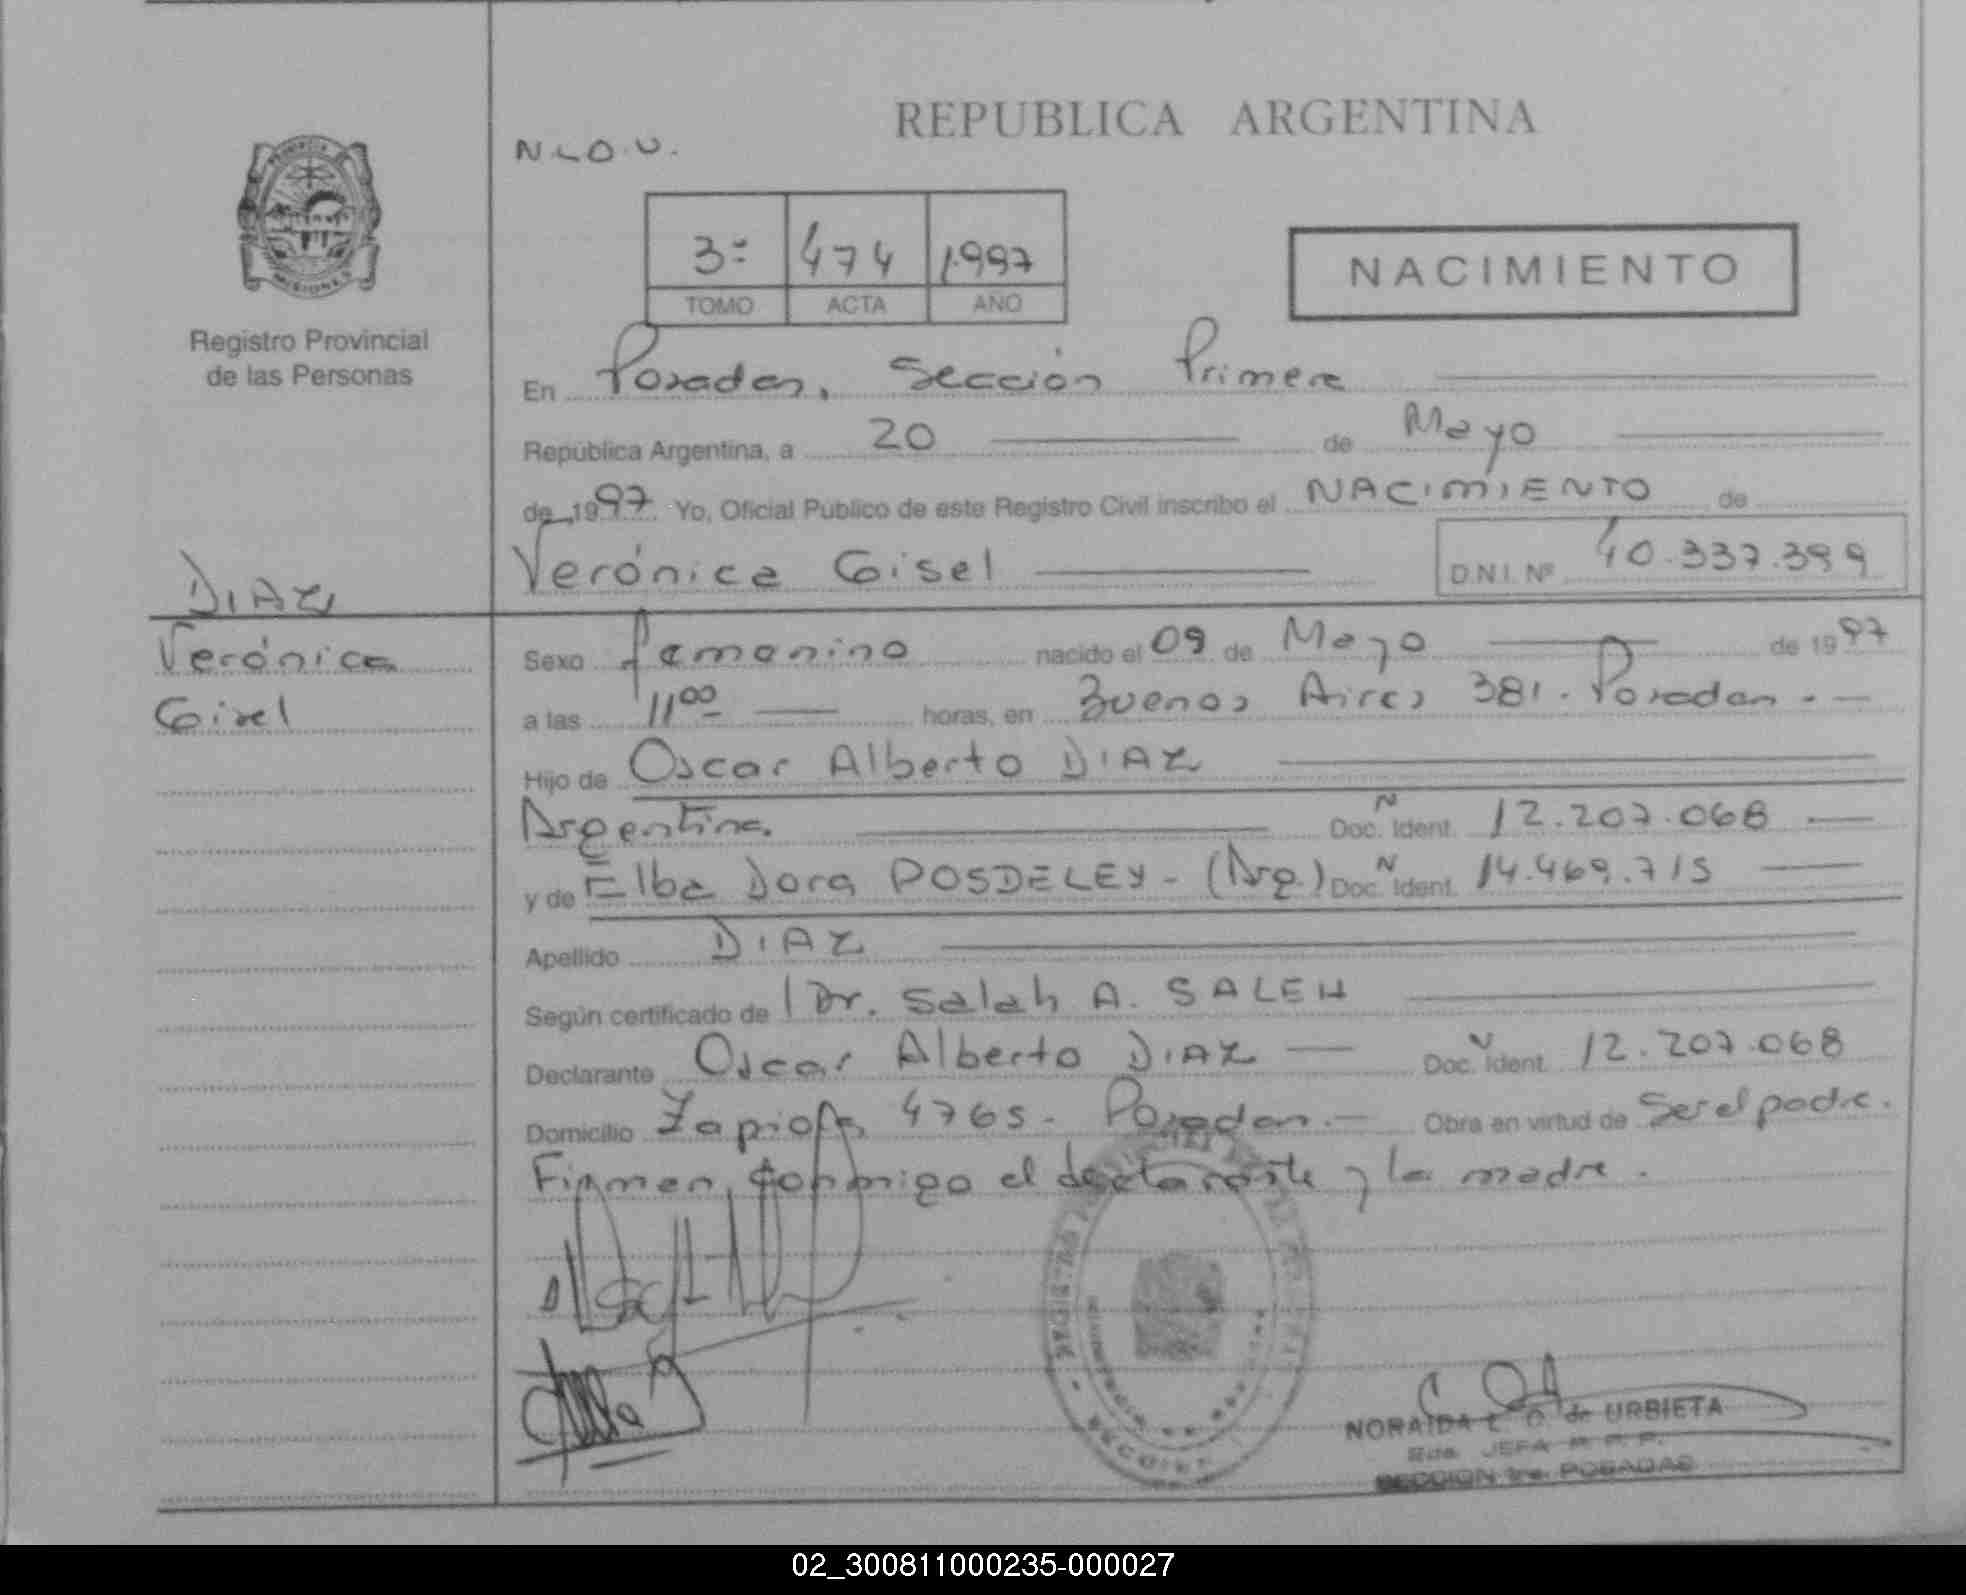 REPUBLICA ARGENTINA
N.L.O.U.
3º 474 1.997
TOMO ACTA AÑO
NACIMIENTO
MISIONES
Registro Provincial
de las Personas
En Posadas, Sección Primera
República Argentina, a 20 de Mayo
de 1997 Yo, Oficial Público de este Registro Civil inscribo el NACIMIENTO de
Verónica Gisel D.N.I. Nº 40.337.399
DIAZ
Verónica
Gisel
Sexo femenino nacido el 09 de Mayo de 1997
a las 11 00 horas, en Buenos Aires 381. Posadas. -
Hijo de Oscar Alberto DIAZ
Argentina. Doc. Ident. 12.207.068
y de Elba Dora POSDELEY - (Arg.) Doc. Ident. 14.469.715
Apellido DIAZ
Según certificado de Dr. Salah A. SALEH
Declarante Oscar Alberto DIAZ Doc. Ident. 12.207.068
Domicilio Zapiola 4765 - Posadas. - Obra en virtud de Ser el padre.
Firman conmigo el declarante y la madre.
NORAIDA L. O. de URBIETA
JEFA R. P. P.
SECCION 1ra. POSADAS
02_300811000235-000027